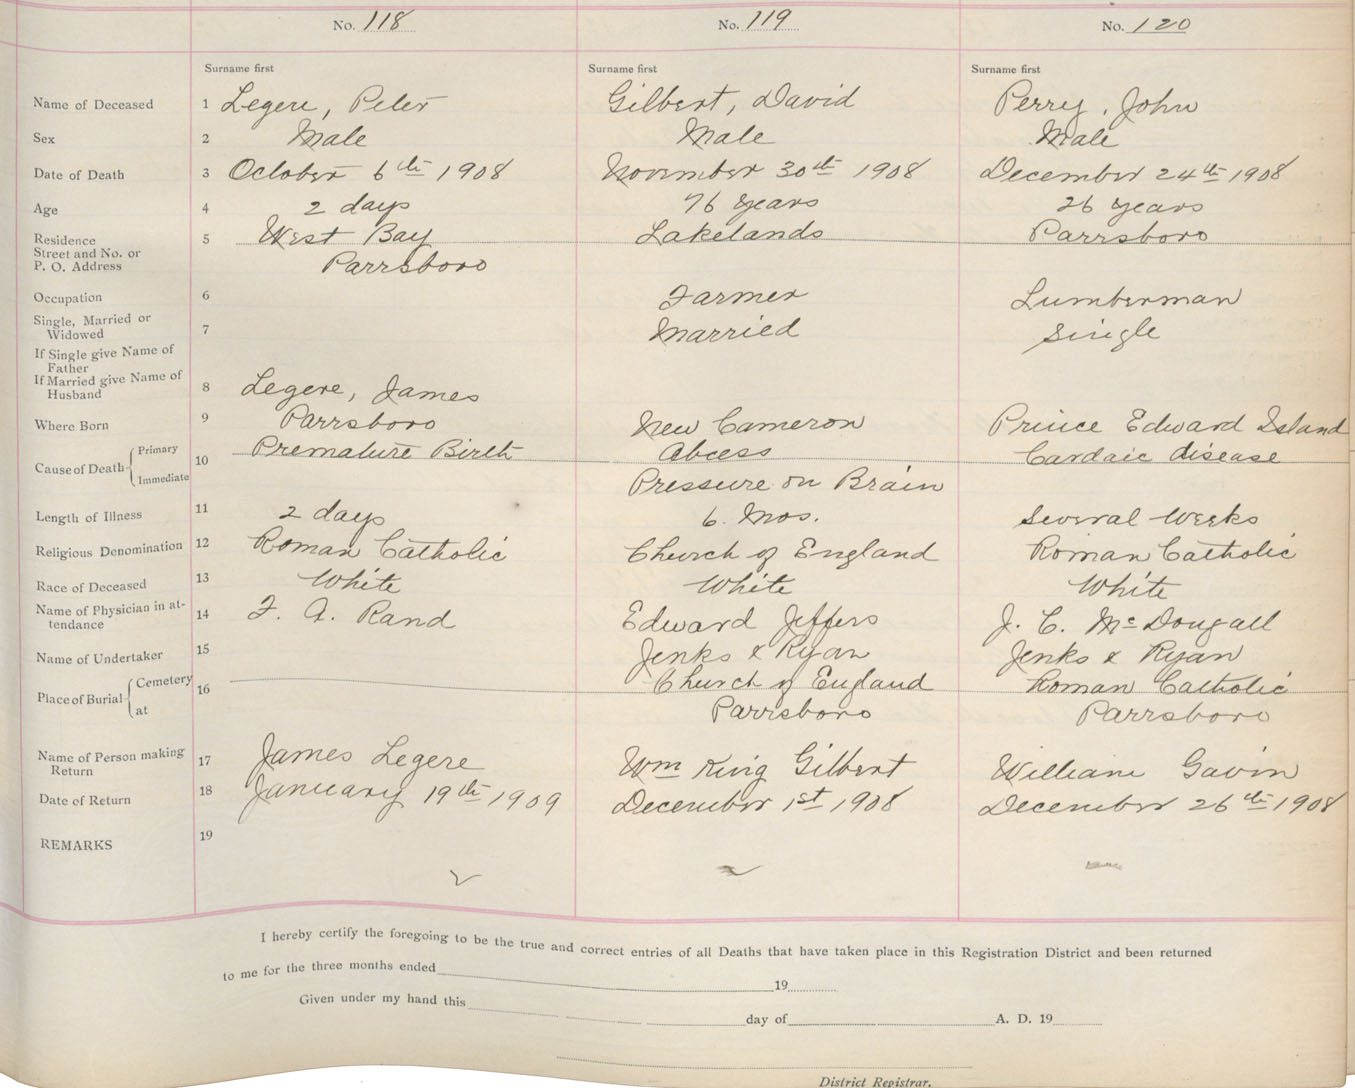 No. 118 No. 119 No. 120
Surname first Surname first Surname first
Name of Deceased 1 Legere, Peter Gilbert, David Perry, John
Sex 2 Male Male Male
Date of Death 3 October 6th 1908 November 30th 1908 December 24th 1908
Age 4 2 days 76 years 26 years
Residence 5 West Bay Lakelands Parrsboro
Street and No. or
P. O. Address Parrsboro
Occupation 6 Farmer Lumberman
Single, Married or
Widowed 7 Married Single
If Single give Name of
Father
If Married give Name of
Husband 8 Legere, James
Where Born 9 Parrsboro New Cameron Prince Edward Island
Cause of Death Primary 10 Premature Birth Abcess Cardaic disease
Immediate Pressure on Brain
Length of Illness 11 2 days 6 Mos. Several Weeks
Religious Denomination 12 Roman Catholic Church of England Roman Catholic
Race of Deceased 13 White White White
Name of Physician in at-
tendance 14 F. A. Rand Edward Jeffers J. C. McDougall
Name of Undertaker 15 Jenks & Ryan Jenks & Ryan
Place of Burial Cemetery 16 Church of England Roman Catholic
at Parrsboro Parrsboro
Name of Person making
Return 17 James Legere Wm King Gilbert William Gavin
Date of Return 18 January 19th 1909 December 1st 1908 December 26th 1908
REMARKS 19
I hereby certify the foregoing to be the true and correct entries of all Deaths that have taken place in this Registration District and been returned
to me for the three months ended 19
Given under my hand this day of A. D. 19
District Registrar.